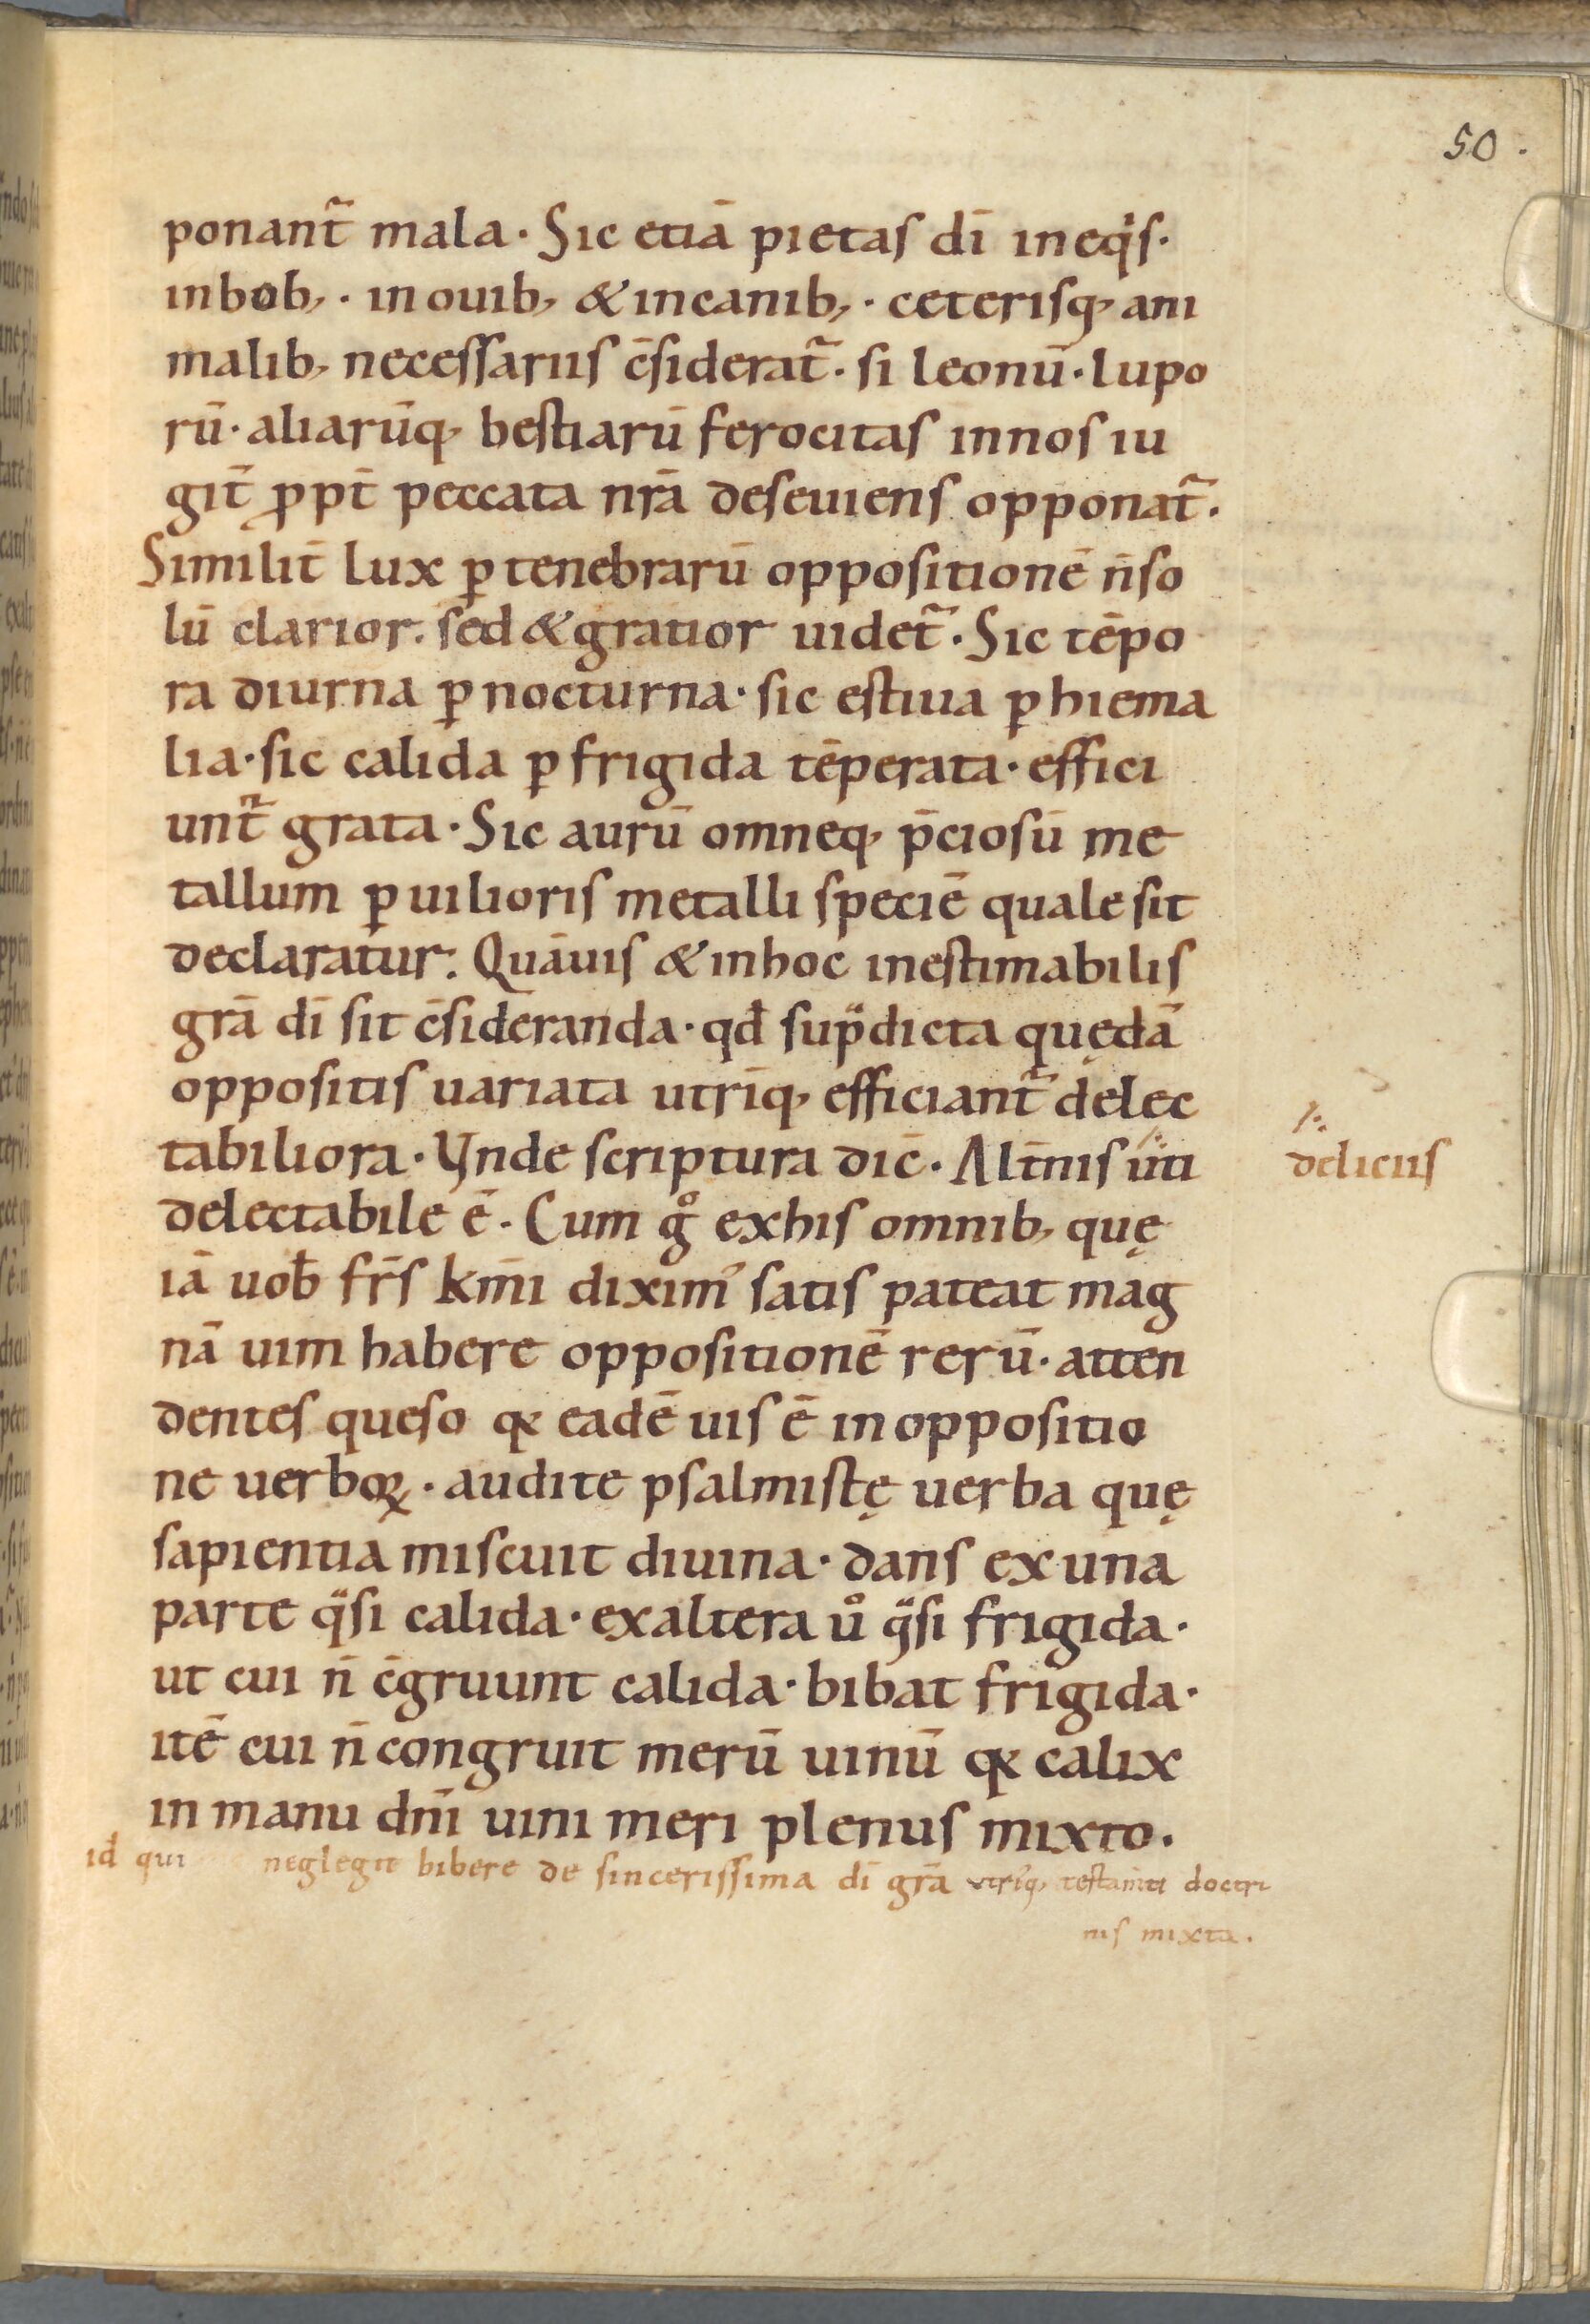 50.
ponant᷑ mala · Sic etiā pietas dī in eqͥs ·
in bob; · in ouib; & in canib; · ceterisq; ani
malib; necessariis c̄siderat᷑ · si leonū · lupo
rū · aliarūq; bestiarū ferocitas in nos iu
git̄ ꝓpt̄ peccata nr̄a deseuiens opponat᷑ ·
Similit̄ lux ꝑ tenebrarū oppositionē n̄ so
lū clarior. sed & gratior uidet᷑ · Sic tēpo
ra diurna ꝑ nocturna · sic estiua ꝑ hiema
lia · sic calida ꝑ frigida tēperata · effici
unt᷑ grata · Sic aurū omneq; p̄ciosū me
tallum ꝑ uilioris metalli speciē quale sit
declaratur. Quāuis & in hoc inestimabilis
gr̄a dī sit c̄sideranda · qđ supᷓdicta quędā
oppositis uariata utrīq; efficiant᷑ delec
tabiliora · Vnde scriptura dic̄ · Alt̄nis uti
deliciis
delectabile ē · Cum gͦ ex his omnib; quę
iā uob̄ fr̄s km̄i diximꝰ satis pateat mag
nā uim habere oppositionē rerū · atten
dentes queso qꝛ eadē uis ē in oppositio
ne uerboꝝ · audite psalmistę uerba quę
sapientia miscuit diuina · dans ex una
parte qᷓsi calida · ex altera uͦ qᷓsi frigida ·
ut cui n̄ c̄gruunt calida · bibat frigida ·
itē cui n̄ congruit merū uinū qꝛ calix
in manu dn̄i uini meri plenus mixto ·
id̄ qui neglegit bibere de sincerissima dī gr̄a utriq; testam̄ti doctri
nis mixta.